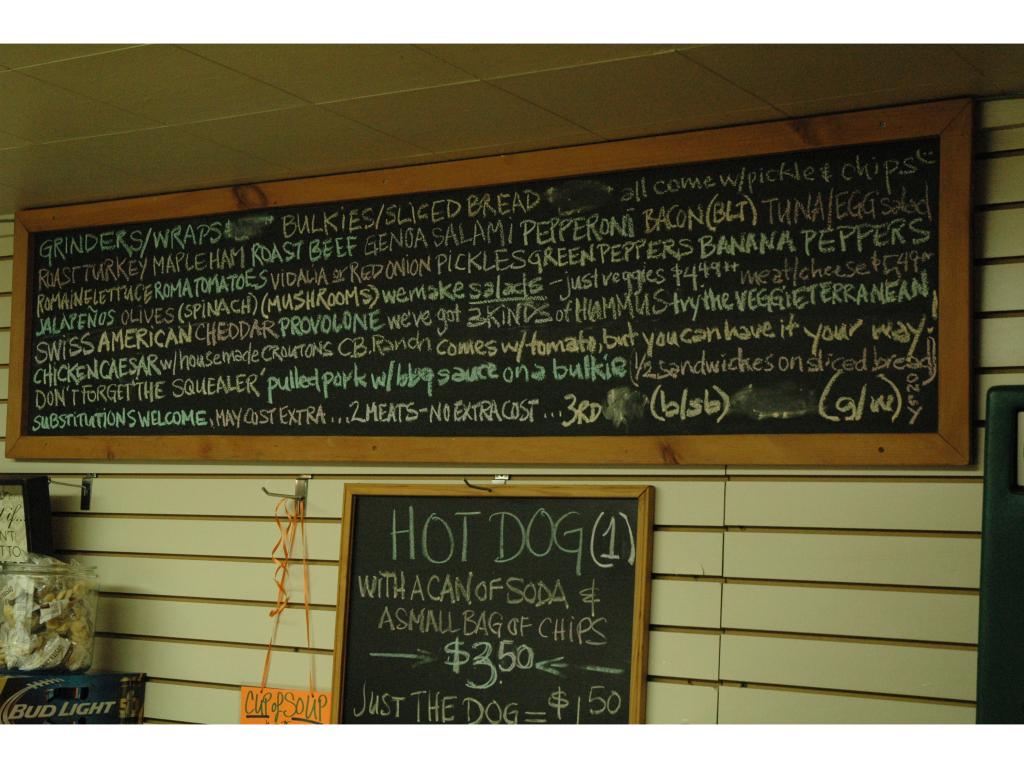 GRINDERS/WRAPS BULKIES/SLICED BREAD all come w/pickle & chips
ROAST TURKEY MAPLE HAM ROAST BEEF GENOA SALAMI PEPPERONI BACON (BLT) TUNA/EGG Salad
ROMAINE LETTUCE ROMA TOMATOES VIDALIA or RED ONION PICKLES GREEN PEPPERS BANANA PEPPERS
JALAPEÑOS OLIVES (SPINACH) (MUSHROOMS) we make salads - just veggies $4.49++ meat/cheese $5.49++
SWISS AMERICAN CHEDDAR PROVOLONE we've got 2 KINDS of HUMMUS try the VEGGIETERRANEAN!
CHICKEN CAESAR w/house made CROUTONS C.B. Ranch comes w/ tomato, but you can have it your way!
DON'T FORGET 'THE SQUEALER' pulled pork w/bbq sauce on a bulkie (1/2 sandwiches on sliced bread only)
SUBSTITUTIONS WELCOME, MAY COST EXTRA ... 2 MEATS - NO EXTRA COST ... 3RD (b/sb) (g/w)
HOT DOG (1)
WITH A CAN OF SODA &
A SMALL BAG OF CHIPS
$3.50
JUST THE DOG = $1.50
CUP of SOUP
BUD LIGHT